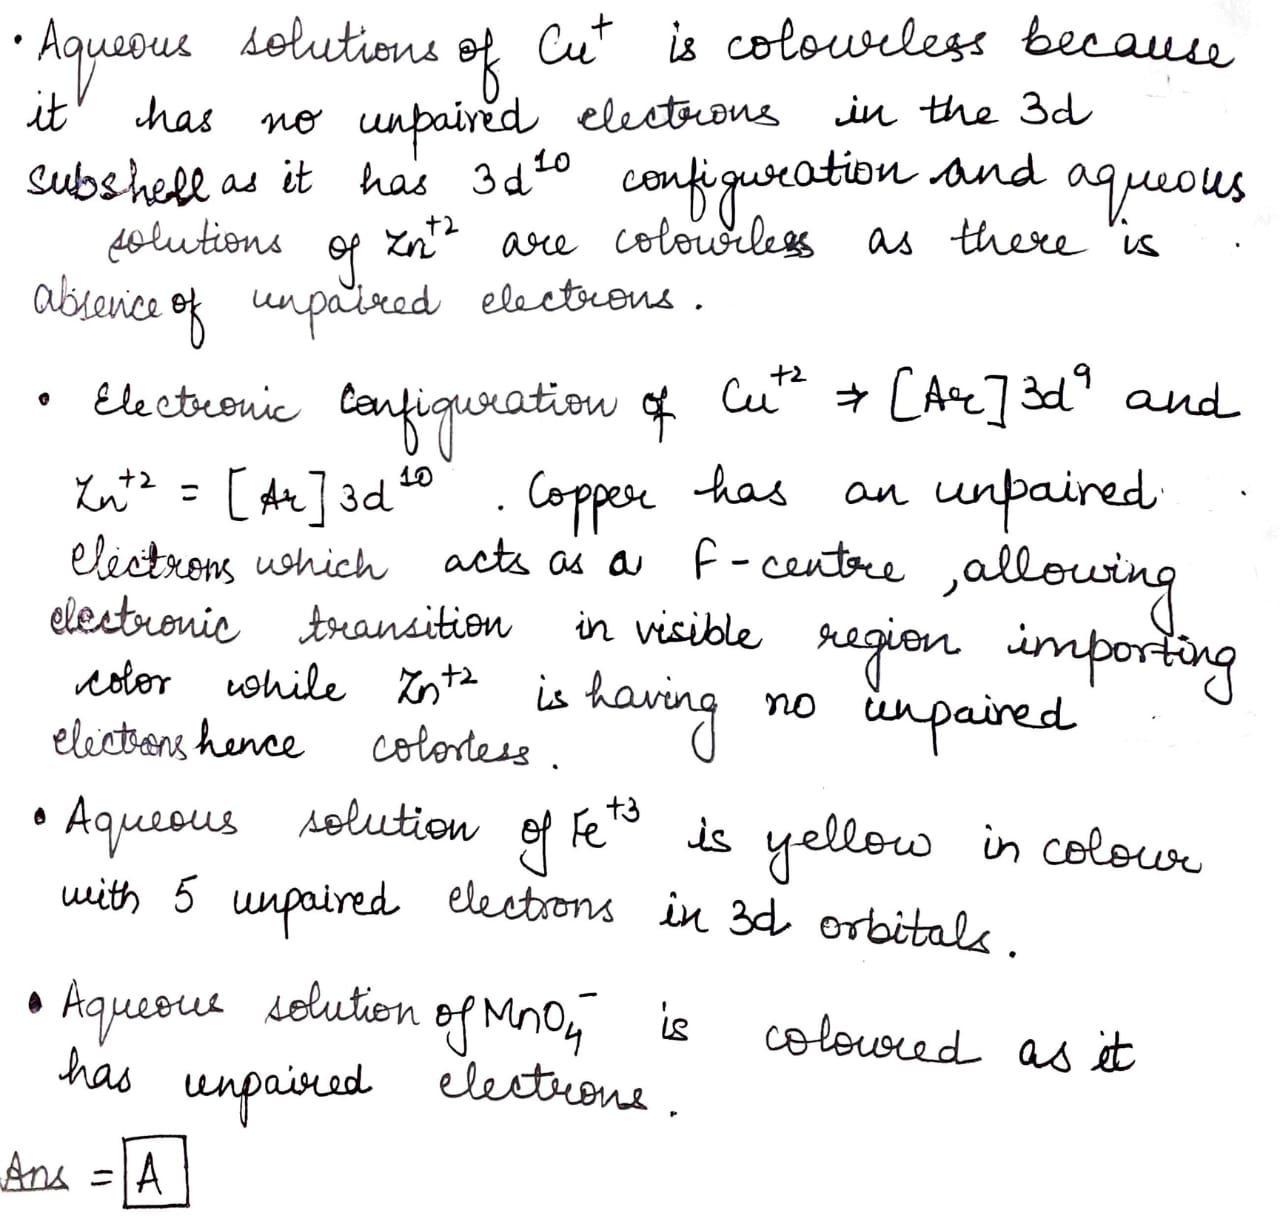 • Aqueous solutions of Cu⁺ is colourless because
it has no unpaired electrons in the 3d
subshell as it has 3d¹⁰ configuration and aqueous
solutions of Zn⁺² are colourless as there is
absence of unpaired electrons.
• Electronic Configuration of Cu⁺² ⇒ [Ar] 3d⁹ and
Zn⁺² = [Ar] 3d¹⁰. Copper has an unpaired
electrons which acts as a F-centre, allowing
electronic transition in visible region importing
color while Zn⁺² is having no unpaired
electrons hence colorless.
• Aqueous solution of Fe⁺³ is yellow in colour
with 5 unpaired electrons in 3d orbitals.
• Aqueous solution of MnO₄⁻ is coloured as it
has unpaired electrons.
Ans = A